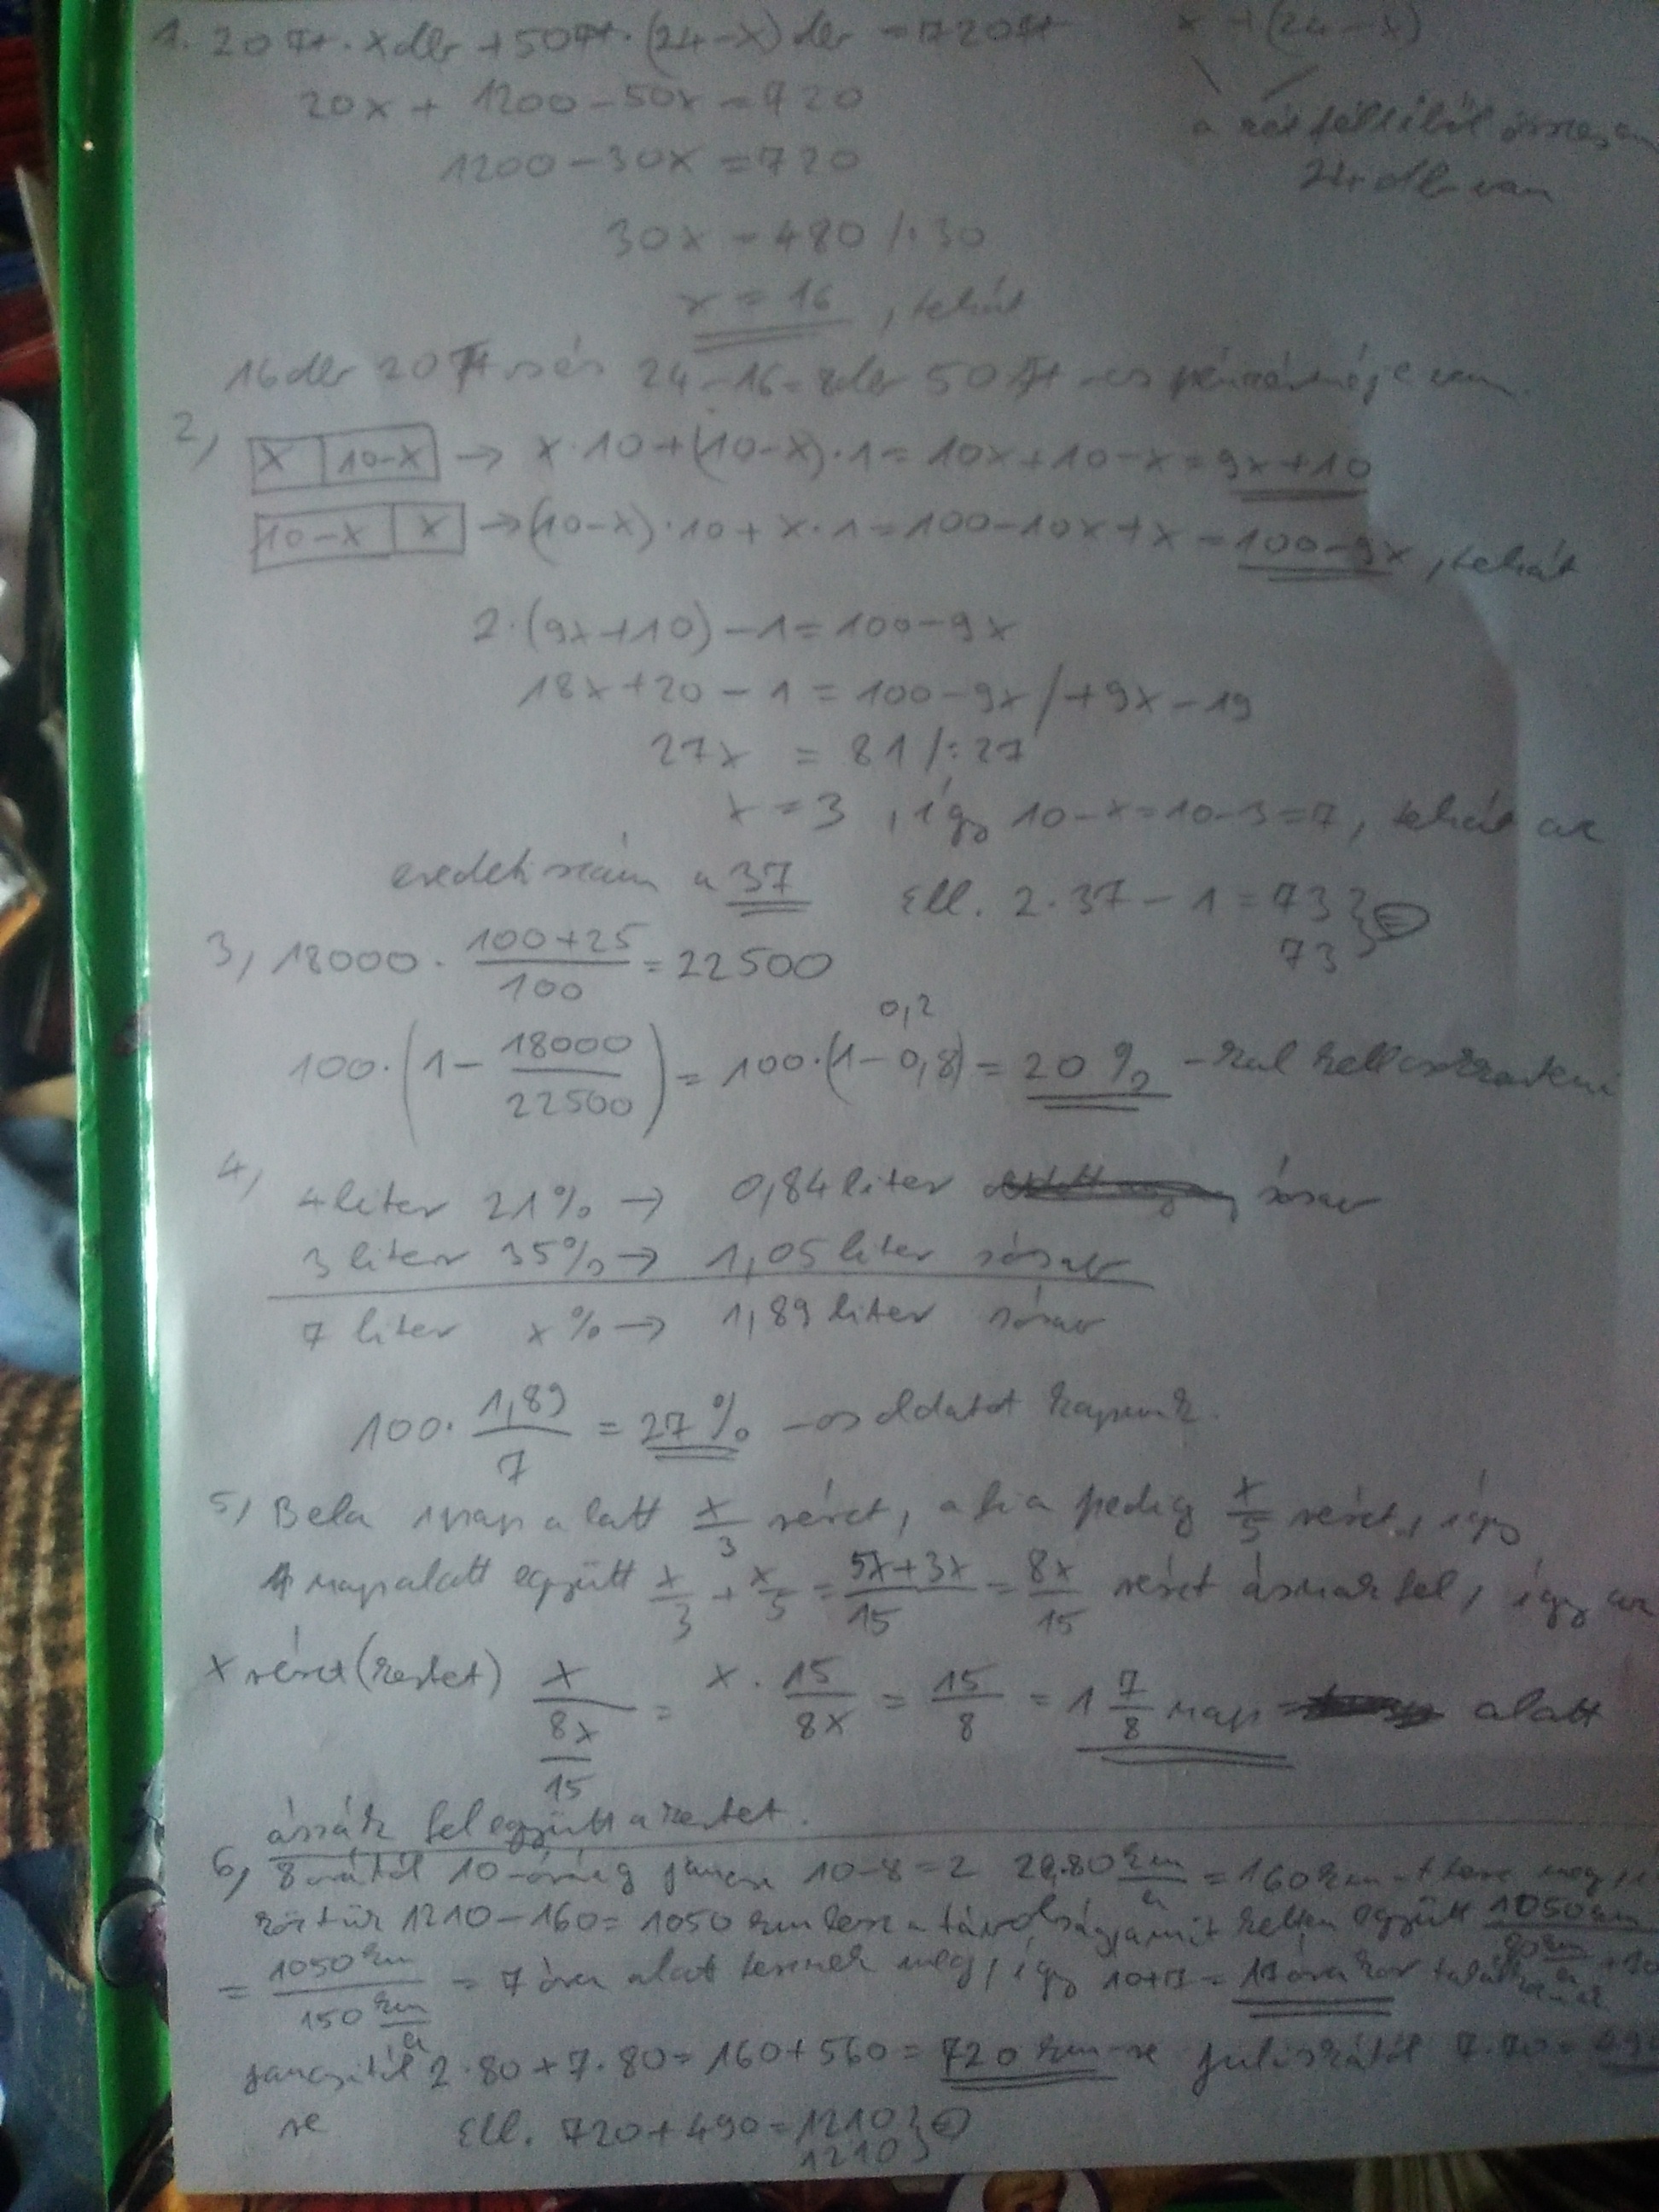 1. 20Ft · x db + 50Ft · (24-x) db = 720Ft x + (24-x)
20x + 1200 - 50x = 720
a két féléből összesen
1200 - 30x = 720
24 db van
30x = 480 /:30
x = 16, tehát
16 db 20 Ft-os és 24-16=8 db 50 Ft-os pénzérméje van.
2, x | 10-x → x·10+(10-x)·1=10x+10-x=9x+10
10-x | x → (10-x)·10+x·1=100-10x+x=100-9x, tehát
2·(9x+10)-1=100-9x
18x+20-1=100-9x /+9x-19
27x = 81 /:27
x=3, így 10-x=10-3=7, tehát az
eredeti szám a 37 Ell. 2·37-1=73 } =
73
3, 18000 · (100+25)/100 = 22500
0,2
100·(1 - 18000/22500) = 100·(1-0,8) = 20% -kal kell csökkenteni
4, 4 liter 21% → 0,84 liter sósav
3 liter 35% → 1,05 liter sósav
7 liter x% → 1,89 liter sósav
100 · 1,89/7 = 27% -os oldatot kapunk.
5, Bela 1 nap alatt x/3 részt, a fia pedig x/5 részt, így
1 nap alatt együtt x/3 + x/5 = (5x+3x)/15 = 8x/15 részt ásnak fel, így az
x részt (kertet) x/(8x/15) = x · 15/8x = 15/8 = 1 7/8 nap alatt
ássák fel együtt a kertet.
6, 8 órától 10 óráig Jancsi 10-8=2 2·80 km/h = 160 km-t tesz meg,
köztük 1210-160=1050 km lesz a távolság, amit ketten együtt 1050 km / 80 km/h +70
= 1050 km / 150 km/h = 7 óra alatt tesznek meg, így 10+7=17 órakor találkoznak
Jancsitól 2·80+7·80=160+560=720 km-re Juliskától 7·70=490
re Ell. 720+490=1210 } =
1210